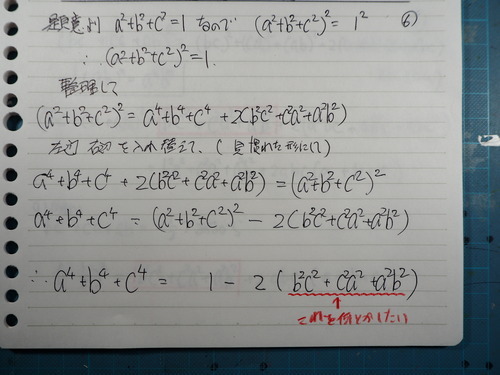 題意より a²+b²+c²=1 なので (a²+b²+c²)²= 1² ⑥
∴ (a²+b²+c²)²=1.
整理して
(a²+b²+c²)² = a⁴+b⁴+c⁴ +2(b²c²+c²a²+a²b²)
左辺 右辺 を入れ替えて、(見慣れた形にして)
a⁴+b⁴+c⁴ + 2(b²c²+c²a²+a²b²) = (a²+b²+c²)²
a⁴+b⁴+c⁴ = (a²+b²+c²)² - 2(b²c²+c²a²+a²b²)
∴ a⁴+b⁴+c⁴ = 1 - 2 (b²c²+c²a²+a²b²)
↑
これを何とかしたい